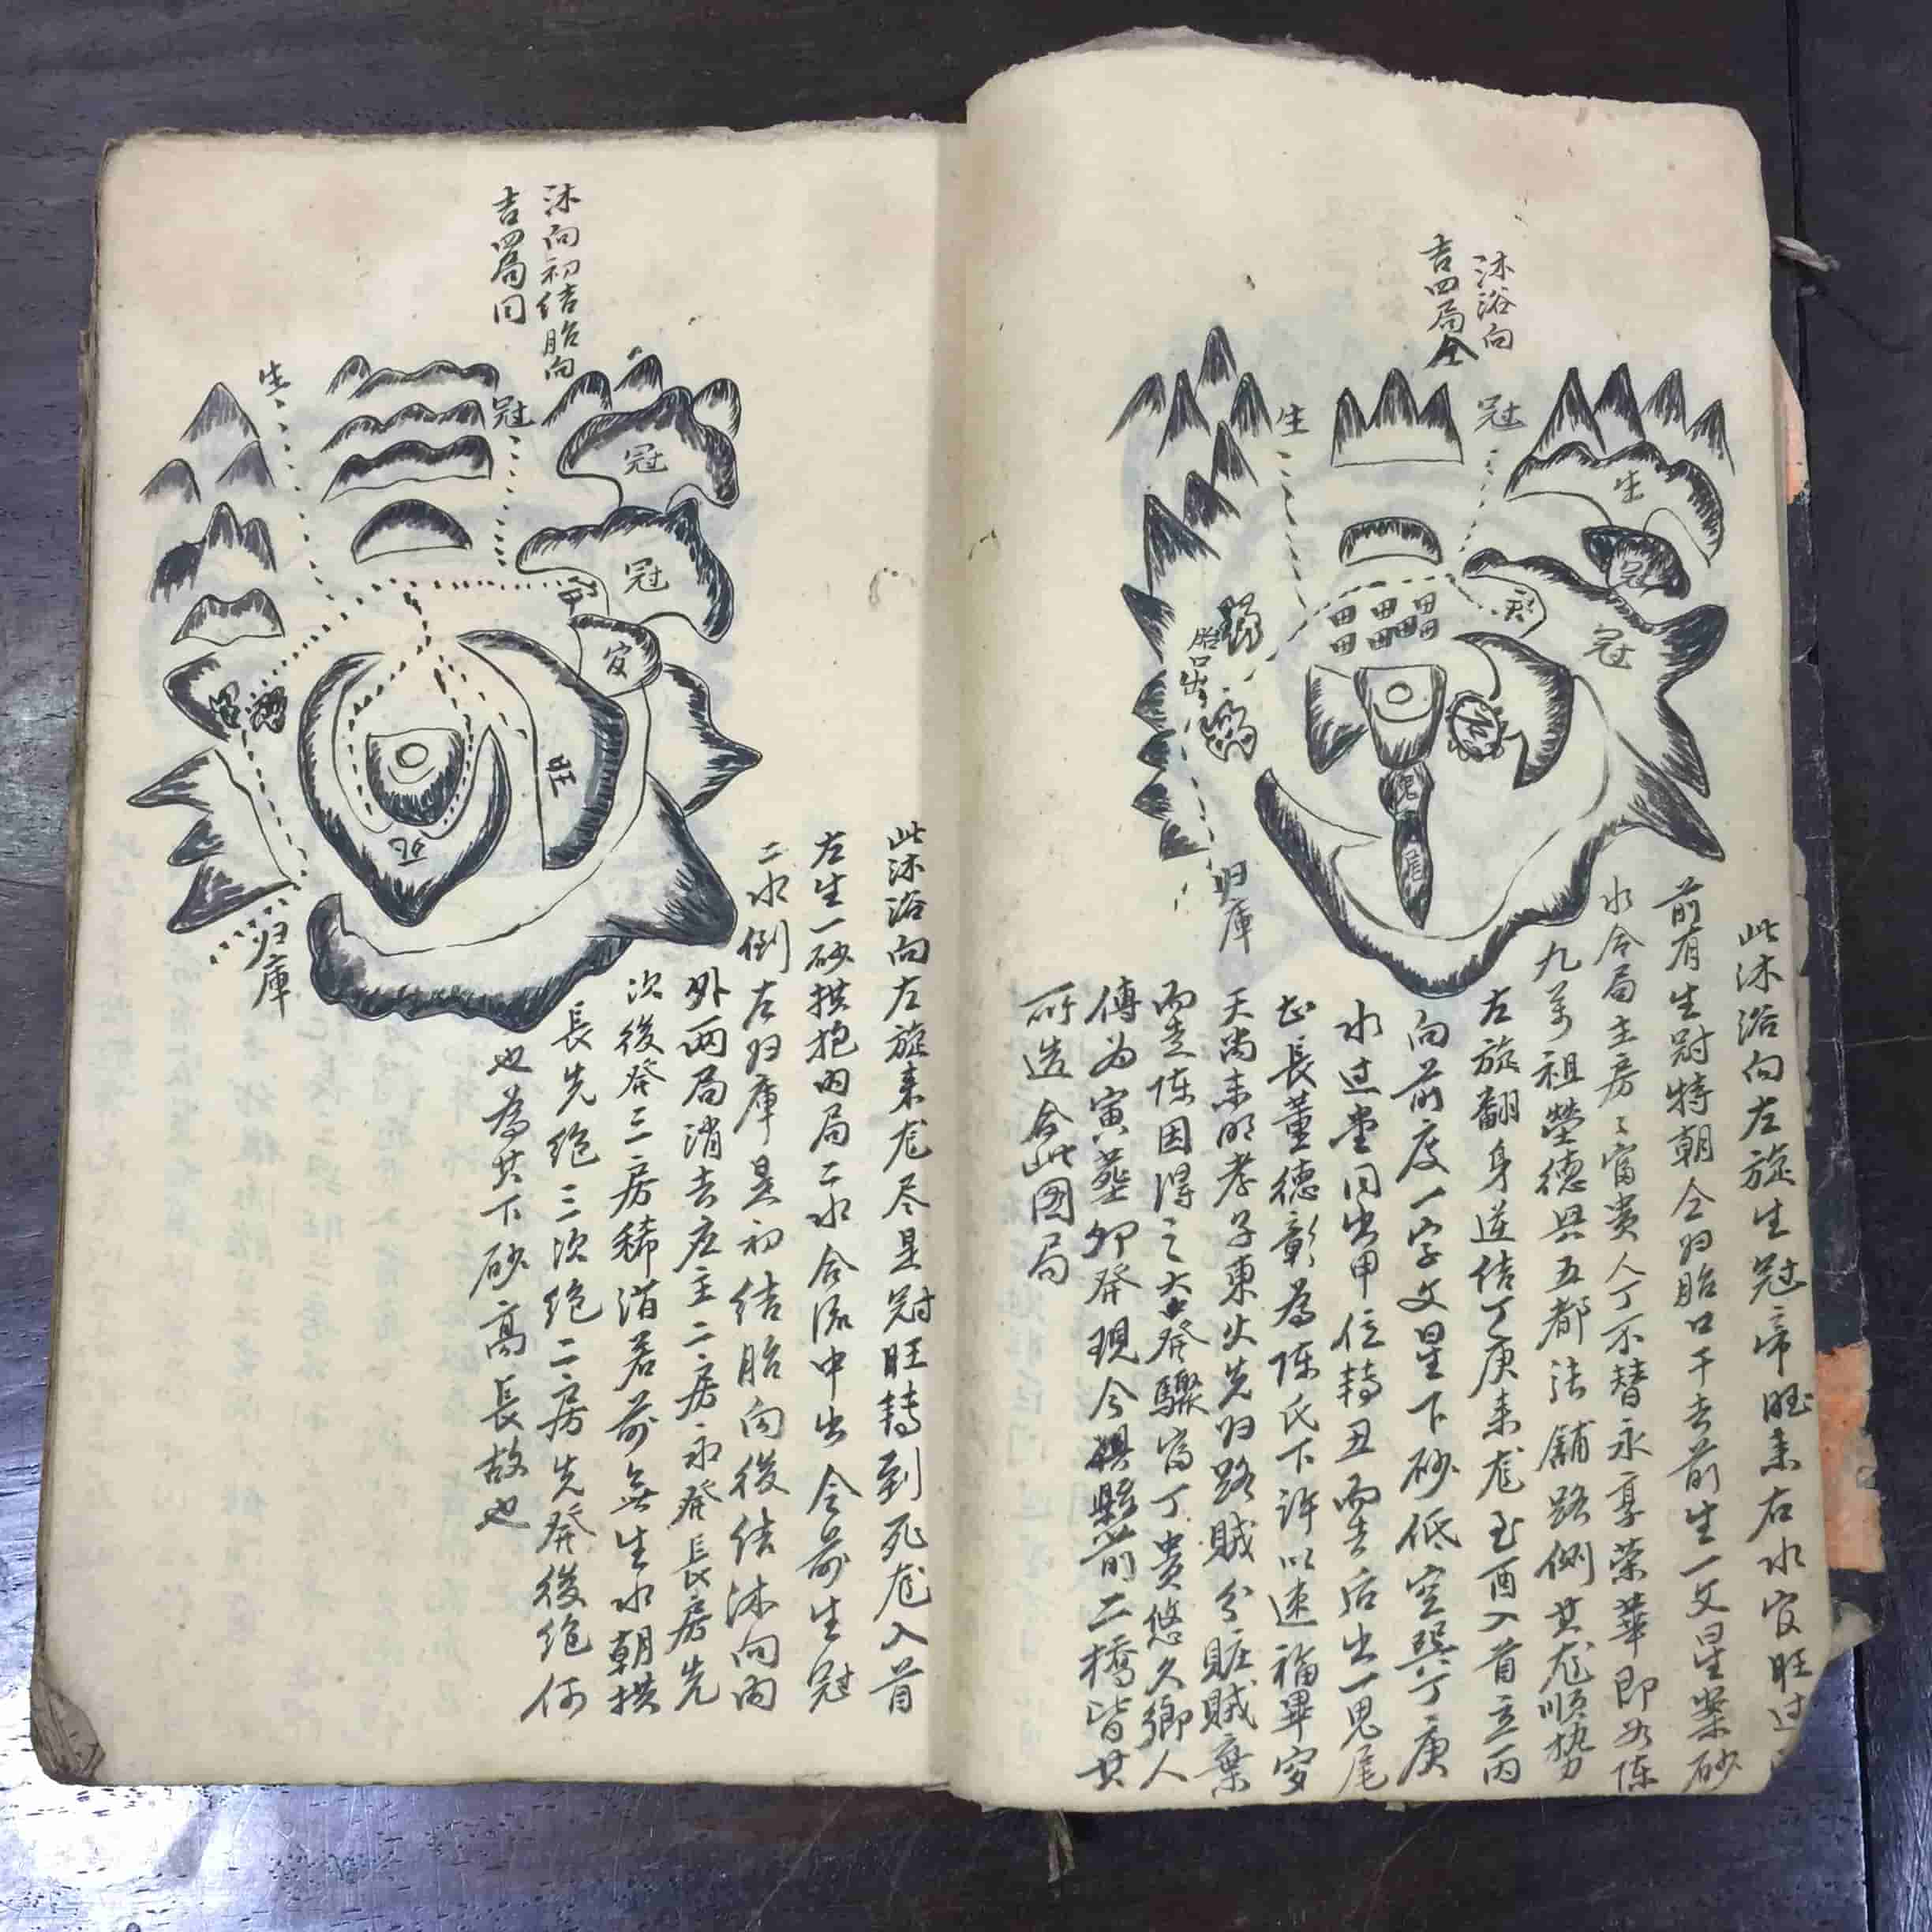 沐浴向
吉四局全
生
冠
生
冠
官
胎口出
鬼
尾
归庫
此沐浴向左旋生冠帝旺来右水官旺过
前有生冠特朝合归胎口千去前生一文星案砂
水合局主房〻富贵人丁不替永享荣華即如陈
九萬祖塋德興五都法舖路側其龙順势
左旋翻身逆结丁庚来龙至酉入首立丙
向前度一字文星下砂低空巽丁庚
水过堂同出甲位轉丑而去后出一鬼尾
長董德彰為陈氏下許以速福畢穿
天尚未明孝子束火先归路賊分賍賊棄
而走陈因得之大發驟富丁貴悠久鄉人
傅为寅塟卯發現今縣前二橋皆其
所造合此图局
沐向初结胎向
吉四局同
生
冠
冠
冠
官
旺
死
归庫
此沐浴向左旋来龙尽是冠旺轉到死龙入首
左生一砂拱抱内局二水合流中出合前生冠
二水倒左归庫是初结胎向後结沐向内
外两局消去左主二房永發長房先
次後發三房稀消若前無生水朝拱
長先绝三次绝二房先發後绝何
也為其下砂高長故也